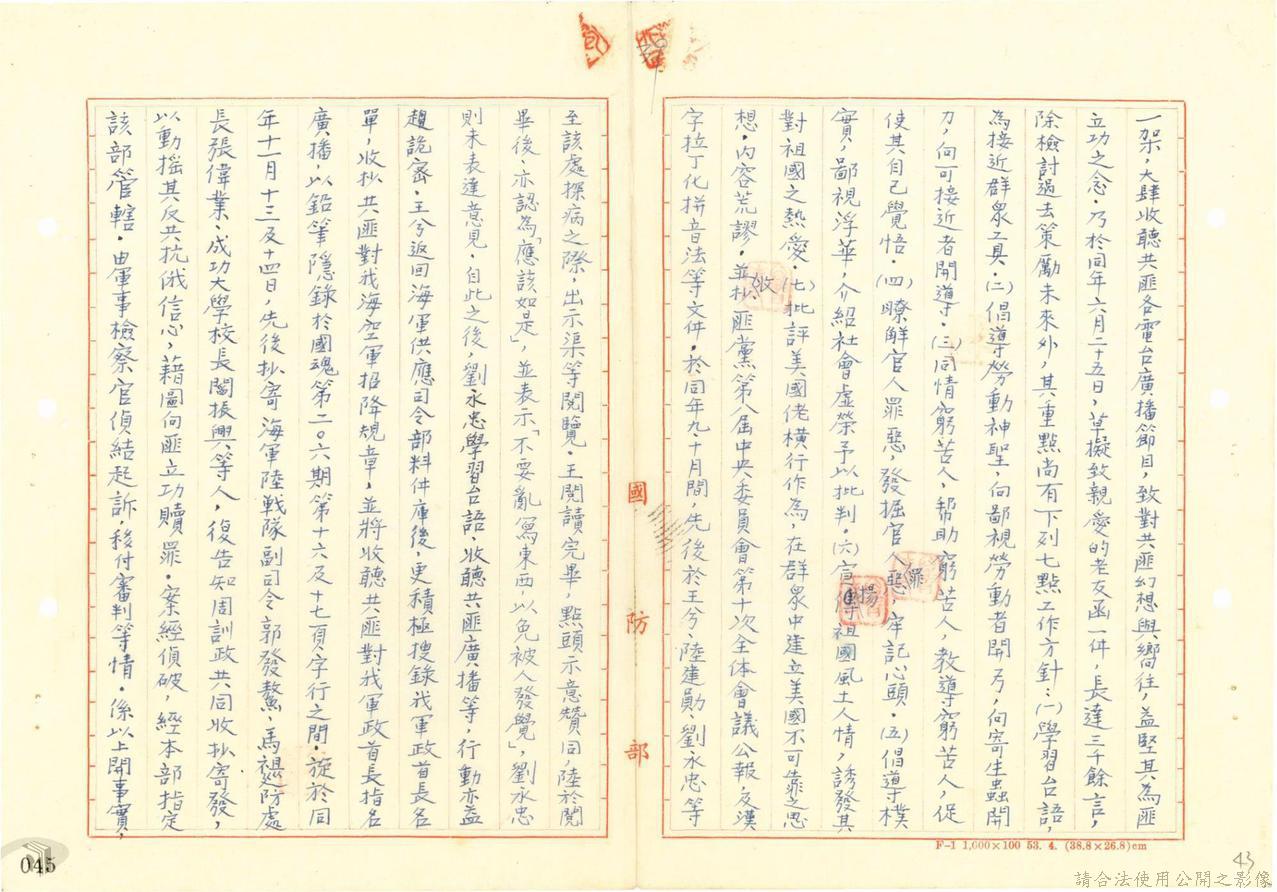 一架，大肆收聽共匪各電台廣播節目，致對共匪幻想與嚮往，益堅其為匪
立功之念。乃於同年六月二十五日，草擬致親愛的老友函一件，長達三千餘言，
除檢討過去策勵未來外，其重點尚有下列七點工作方針：(一)學習台語，
為接近群眾工具。(二)倡導勞動神聖，向鄙視勞動者開刀，向寄生蟲開
刀，向可接近者開導。(三)同情窮苦人，幫助窮苦人，教導窮苦人，促
使其自己覺悟。(四)瞭解官人罪惡，發掘官人罪惡，牢記心頭。(五)倡導樸
實，鄙視浮華，介紹社會虛榮予以批判。(六)宣揚祖國風土人情，誘發其
對祖國之熱愛。(七)批評美國佬橫行作為，在群眾中建立美國不可靠之思
想。內容荒謬，並收抄匪黨第八屆中央委員會第十次全体會議公報，及漢
字拉丁化拼音法等文件。於同年九、十月間，先後於王兮、陸建勛、劉永忠等
至該處探病之際，出示渠等閱覽。王閱讀完畢，點頭示意贊同，陸於閱
畢後，亦認為「應該如是」，並表示「不要亂寫東西，以免被人發覺」，劉永忠
則未表達意見。自此之後，劉永忠學習台語、收聽共匪廣播等，行動亦益
趨詭密。王兮返回海軍供應司令部料件庫後，更積極搜錄我軍政首長名
單，收抄共匪對我海空軍招降規章，並將收聽共匪對我軍政首長指名
廣播，以鉛筆隱錄於國魂第二〇六期第十六及十七頁字行之間。旋於同
年十一月十三及十四日，先後抄寄海軍陸戰隊副司令郭發鰲、馬禔防處
長張偉業、成功大學校長閻振興等人，復告知周訓政共同收抄寄發，
以動搖其反共抗俄信心，藉圖向匪立功贖罪。案經偵破，經本部指定
該部管轄。由軍事檢察官偵結起訴，移付審判等情。係以上開事實，
國防部
F-1 1,000×100 53. 4. (38.8×26.8)cm
045
43
請合法使用公開之影像